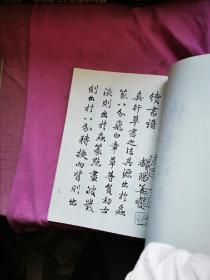 續書譜
鄱陽姜夔
真行草書之法其源出於蟲
篆八分飛白章草等圓勁古
淡則出於蟲篆點畫波發
則出於八分轉換向背則出